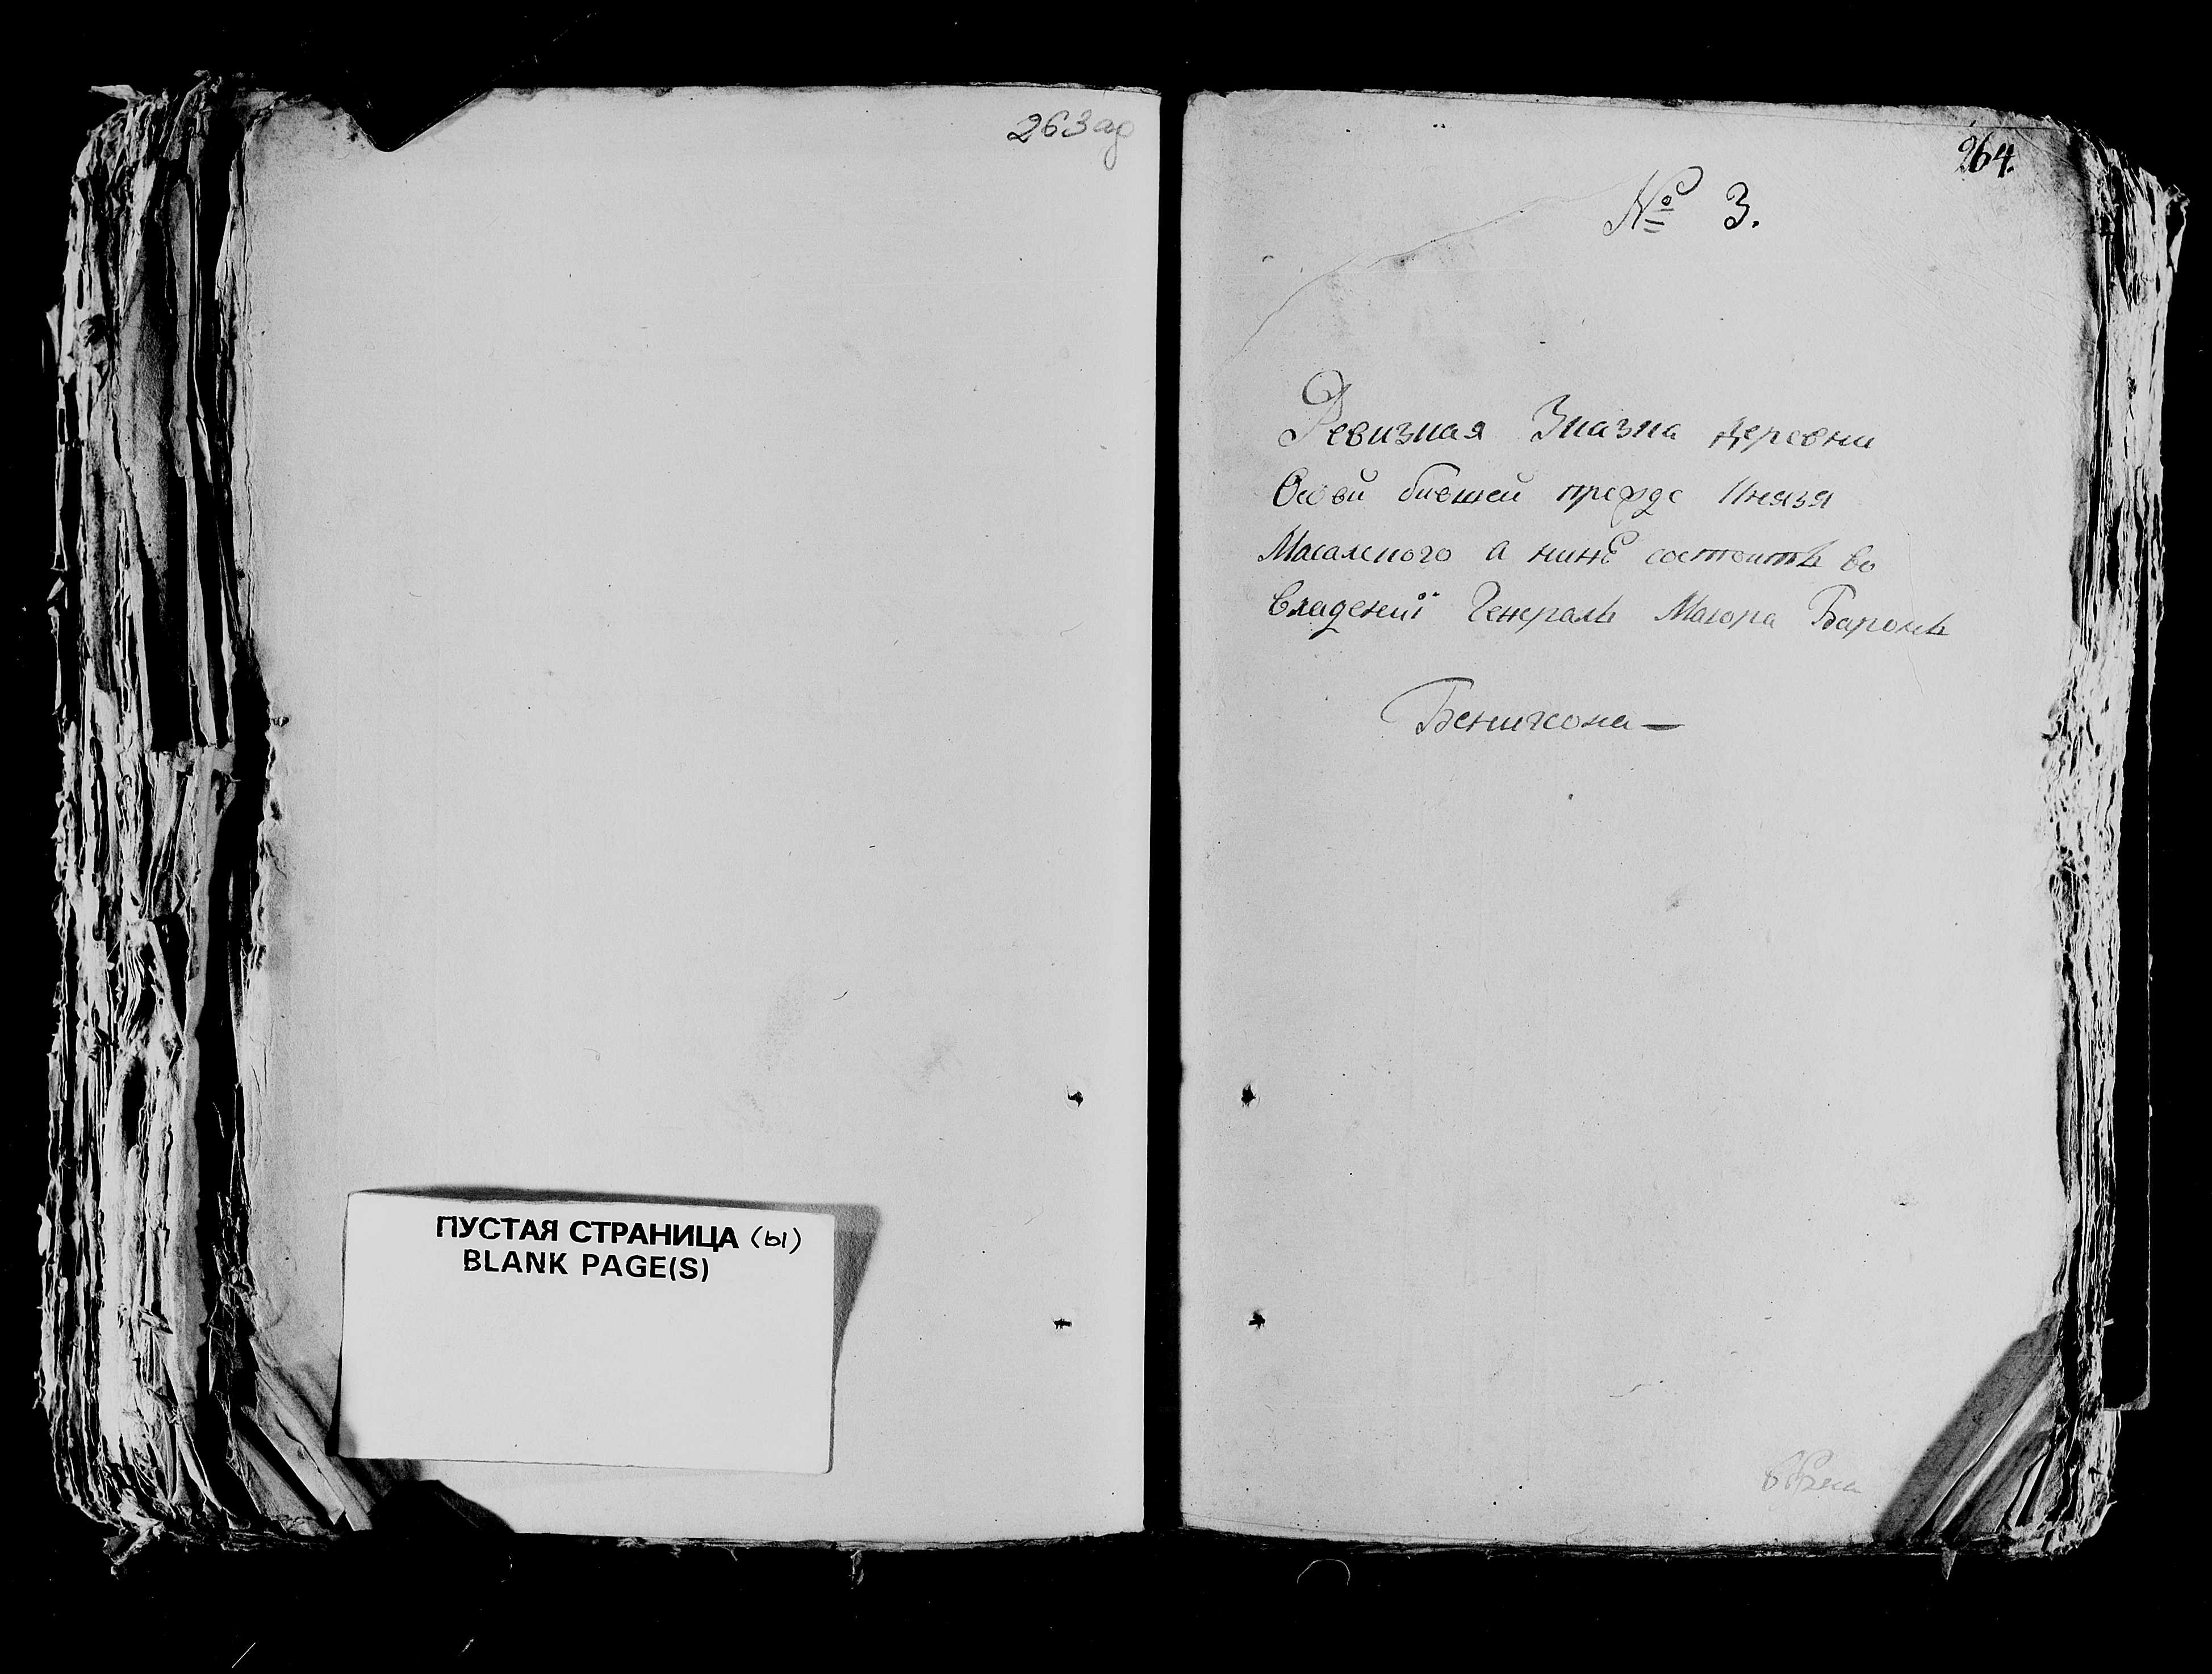 263ад
ПУСТАЯ СТРАНИЦА (ы)
BLANK PAGE(S)
264.
№ 3.
Ревизная Сказка деревни
бившей прежде Князя
Масалского а нинѣ состоитъ во
владениї Генералъ Маиора Баронъ
Бенигсона —